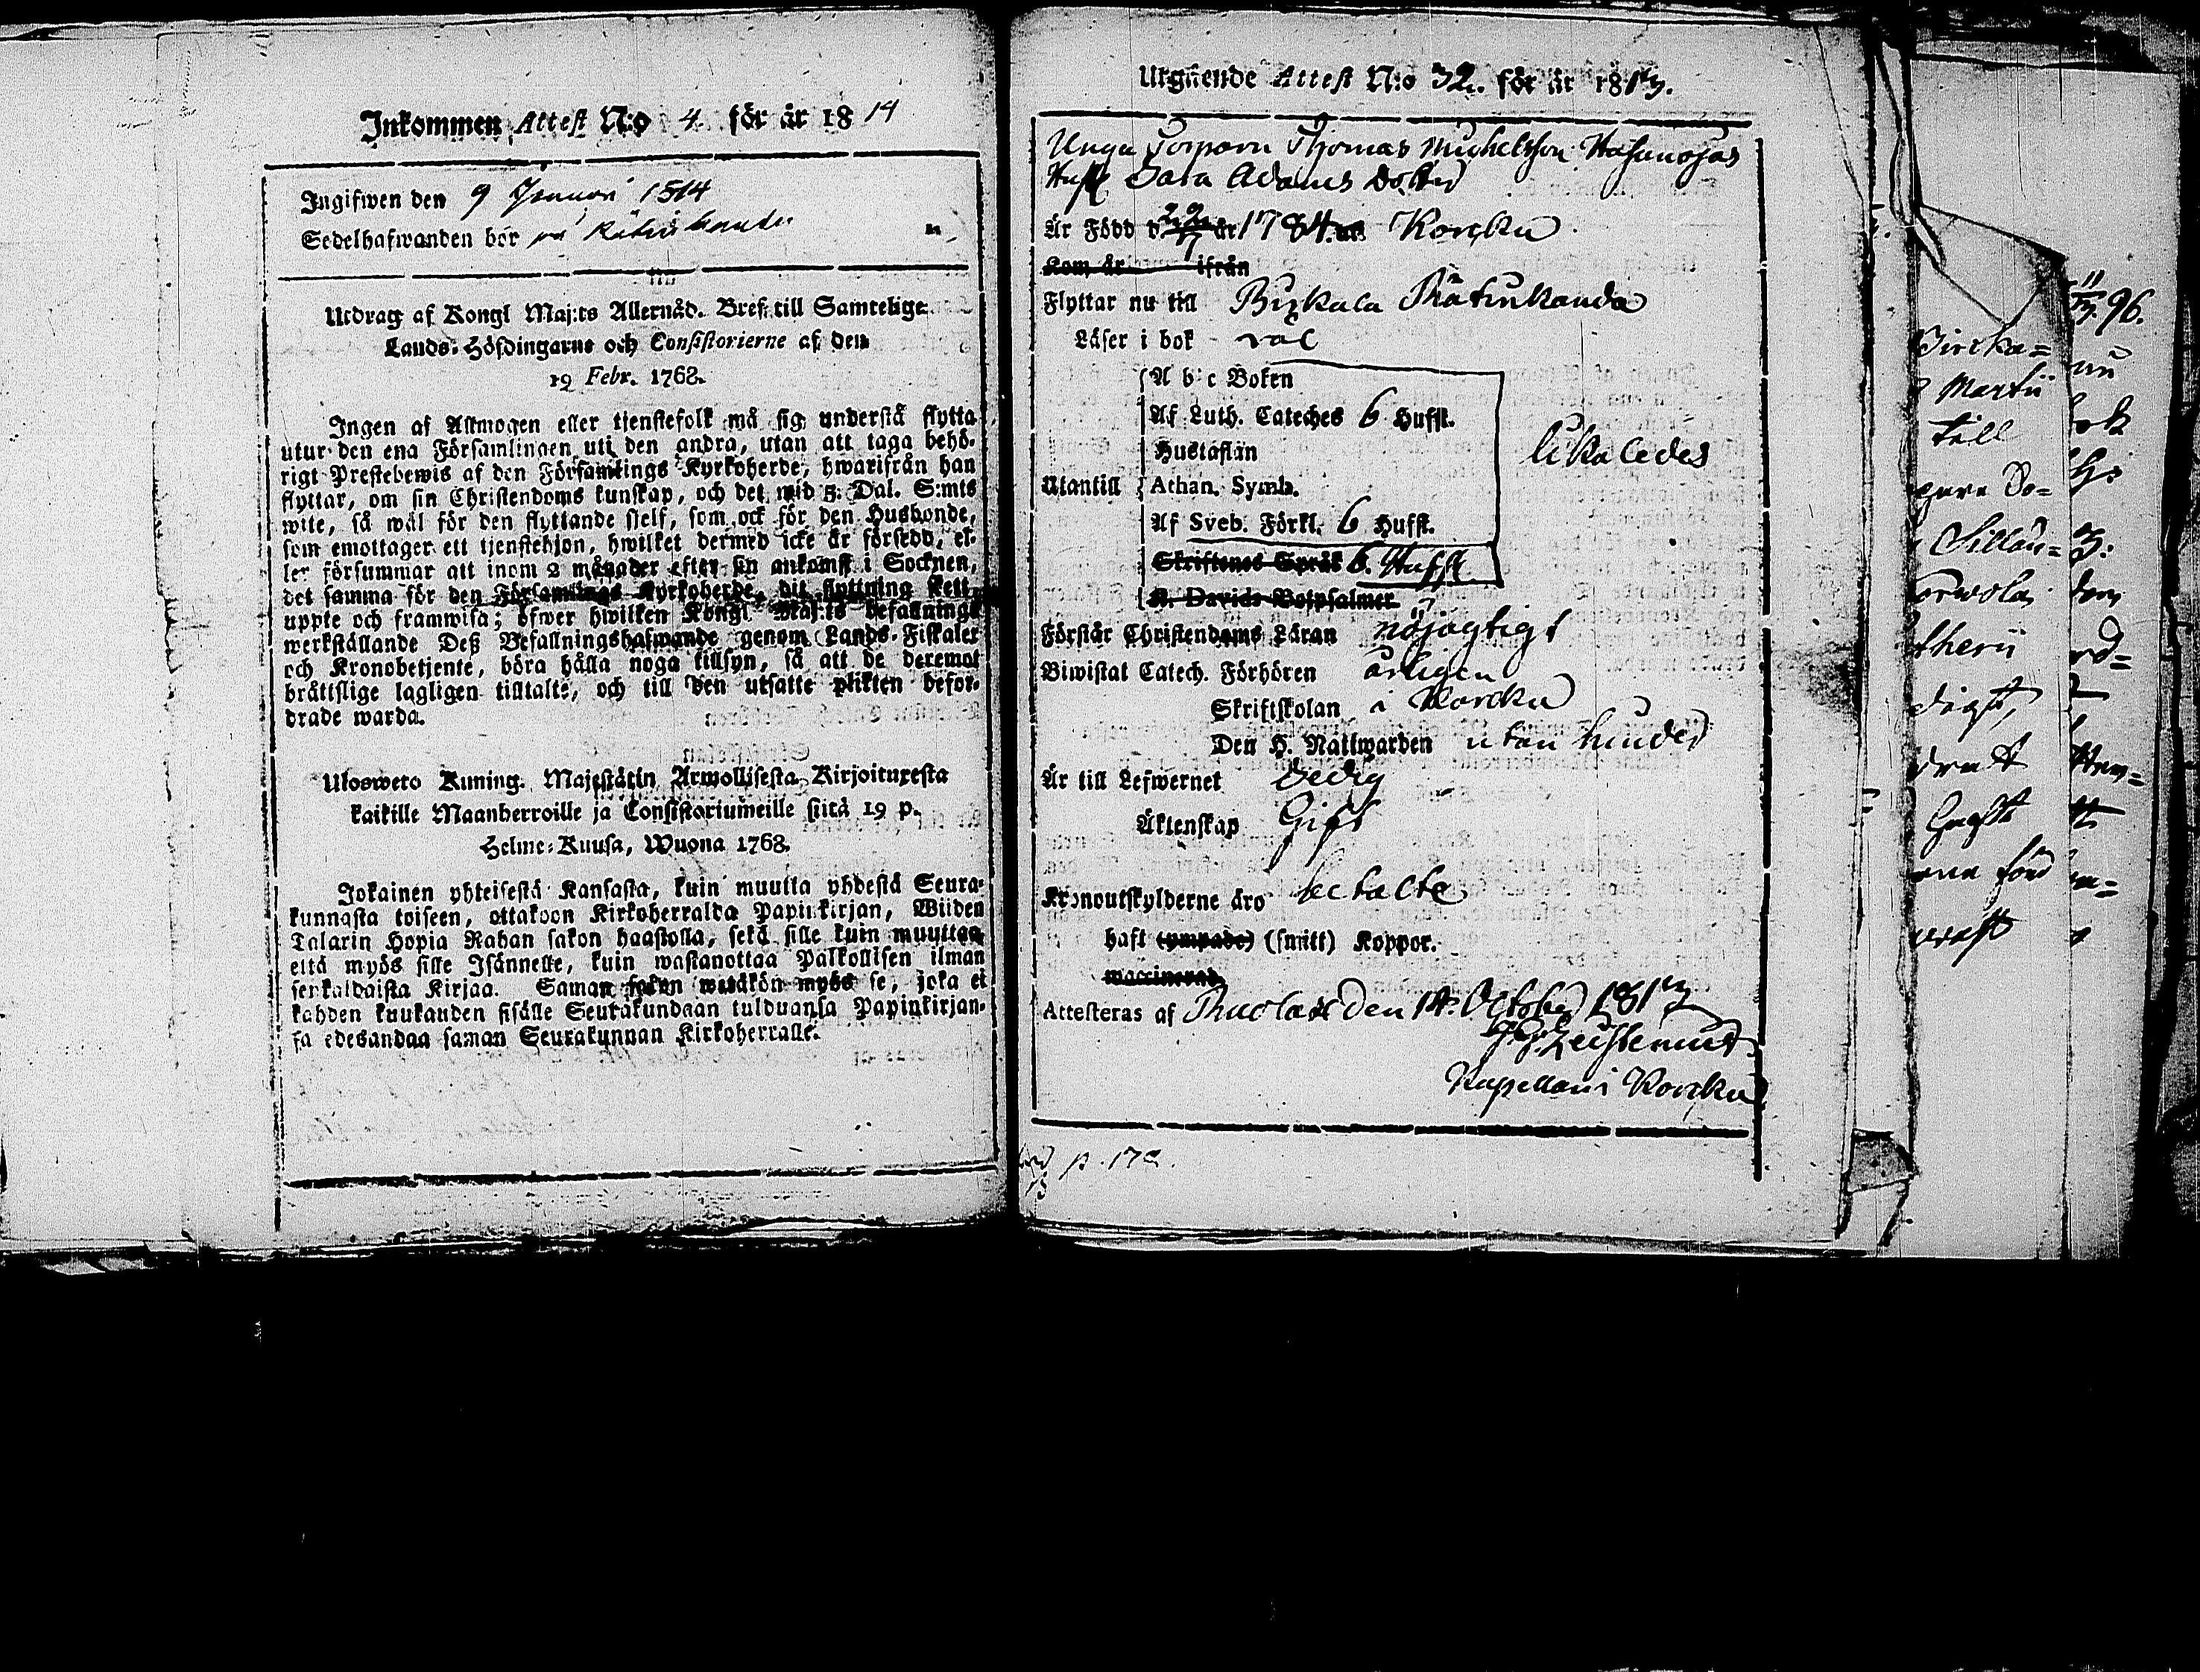 Inkommen Attest N:o 4 för år 1814
Ingifwen den 9 Januari 1814
Sedelhafwanden bor på
Utdrag af Kongl Maj:ts Allernåd. Bref till Samtelige
Lands-Höfdingarne och Consistorierne af den
19 Febr. 1768.
Ingen af Allmogen eller tjenstefolk må sig understå flytta
utur den ena Församlingen uti den andra, utan att taga behö-
rigt Prestebewis af den Församlings Kyrkoherde, hwarifrån han
flyttar, om sin Christendoms kunskap, och det wid 5 Dal. S:mts
wite, så wäl för den flyttande sjelf, som ock för den Husbonde,
som emottager ett tjenstehjon, hwilket dermed icke är försedd, el-
ler försummar att inom 2 månader efter sin ankomst i Socknen,
det samma för den Församlings Kyrkoherde, dit flyttning skett,
uppte och framwisa; öfwer hwilken Kongl Maj:ts befallnings
werkställande Deß Befallningshafwande genom Lands-Fiskaler
och Kronobetjente, böra hålla noga tillsyn, så att de deremot
bråttslige lagligen tilltalte, och till den utsatte plikten befor-
drade warda.
Ulosweto Kuning. Majestätin Armollisesta Kirjoituxesta
kaikille Maanherroille ja Consistoriumeille siitä 19 p.
Helme-Kuusa, Wuona 1768.
Jokainen yhteisestä Kansasta, kuin muutta yhdestä Seura-
kunnasta toiseen, ottakoon Kirkoherralda Papinkirjan, Wiiden
Talarin Hopia Rahan sakon haastolla, sekä sille kuin muuttaa,
että myös sille Isännelle, kuin wastanottaa Palkollisen ilman
senkaldaista Kirjaa. Saman sakon wetäkön myös se, joka ei
kahden kuukauden sisälle Seurakundaan tulduansa Papinkirjan-
sa edesandaa saman Seurakunnan Kirkoherralle.
Utgående Attest N:o 32. för år 1813.
Unga Torparn Thomas Michelsson Hasanojas
Hust Sara Adams Dotter
Är Född d 22/7 år 1784. Korpku
Kom år ifrån
Flyttar nu till Birkala Rätinkanda
Läser i bok väl
A b c Boken
Af Luth. Cateches 6 Huffst.
Hustaflan
Utantill Athan. Symb.
Af Sveb. Förkl. 6 Huffst.
likaledes
Skriftenes Språk 6. Huffst
K. Davids Botpsalmer
Förstår Christendoms Läran nöjagtigt
Biwistat Catech. Förhören årligen
Skriftskolan i Korcku
Den H. Nattwarden utan hinder
Är till Lefwernet Sedig
Äktenskap Gift
Kronoutskylderne äro betalte
haft (ympade) (smitt) Koppor.
waccinerad
Attesteras af den 14 October 1813
Kapellan i Korpku
p. 178.